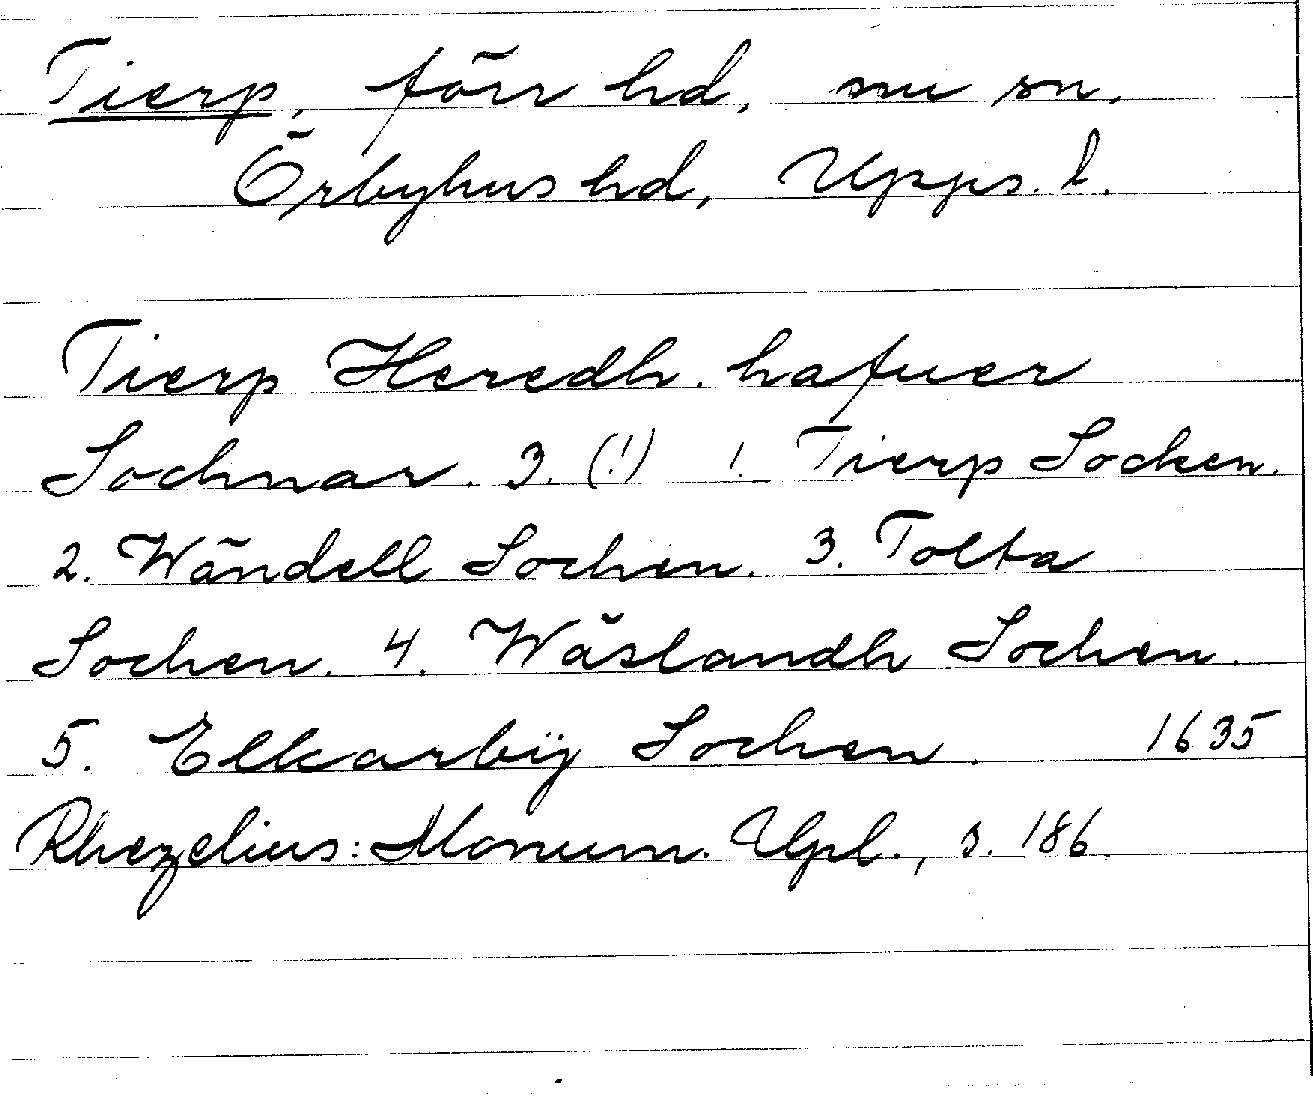 Tierp, förr hd, nu sn.
Örbyhus hd, Upps. l.
Tierp Heredh. hafuer
Sochnar. 3. (!) 1. Tierp Socken.
2. Wändell Sochen. 3. Tolta
Sochen. 4. Wäslandh Sochen.
5. Elkarbÿ Sochen. 1635
Rhezelius: Monum. Upl., s. 186.